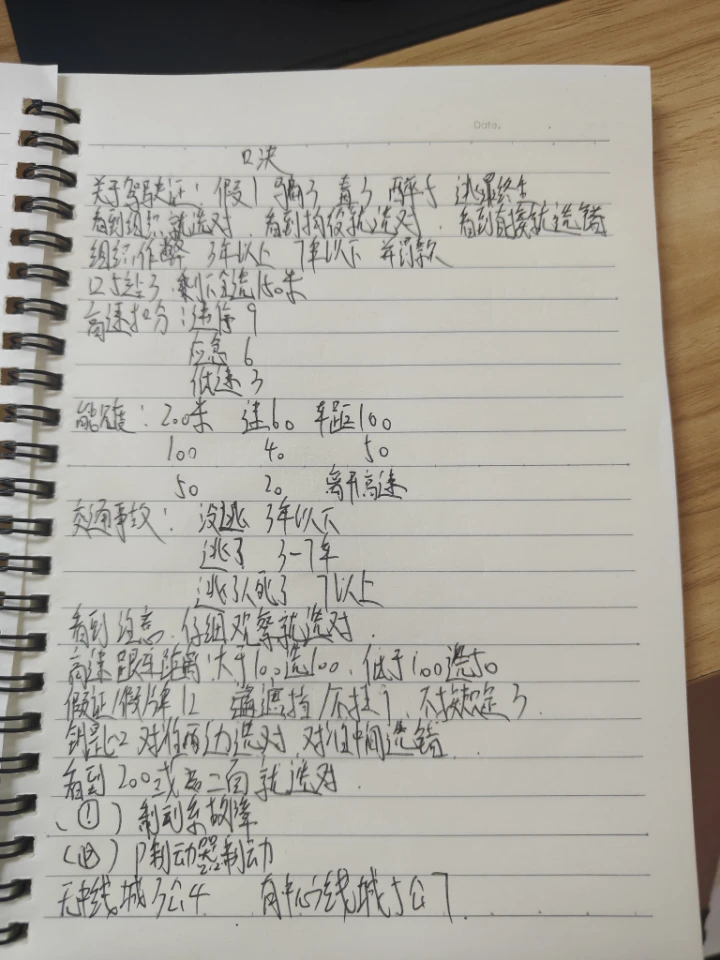 Date.
口决
关于驾驶证：假1 骗3 毒3 醉5 逃逸终生
看到组织就选对，看到拘役就选对，看到直接就选错
组织作弊 3年以上 7年以下 并罚款
口5站3，剩下全选150米
高速扣分：违停 9
应急 6
低速 3
能见度：200米 速60 车距100
100 40 50
50 20 离开高速
交通事故：没逃 3年以下
逃了 3-7年
逃了人死了 7以上
看到注意，仔细观察就选对，
高速跟车距离 大于100选100，低于100选50
假证/假牌 12 遮挡/不挂9，不按规定 3
钥匙 对准两边选对，对准中间选错，
看到200或二百就选对，
(!) 制动系故障
(P) P制动器制动
无中线城3公4 有中心线城5公7